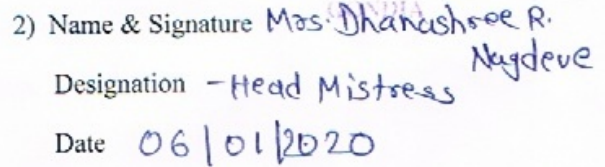 2) Name & Signature Mrs. Dhanashree R.
Nagdeve
Designation - Head Mistress
Date 06/01/2020